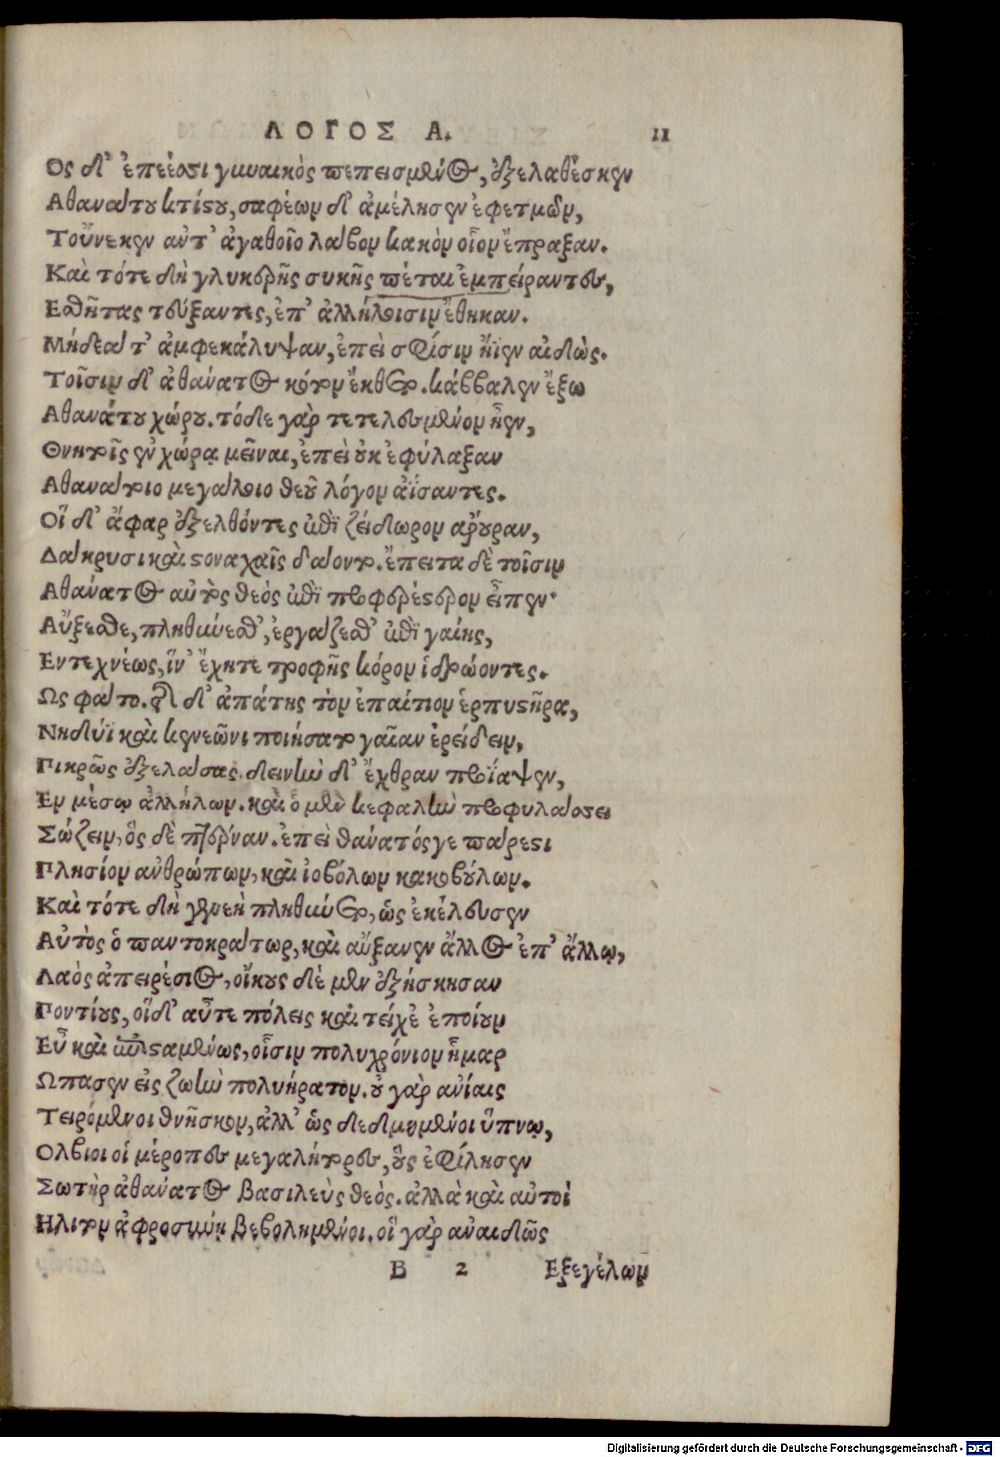 ΛΟΓΟΣ Α. 11
Ὃς δ' ἐπέεσσι γυναικὸς πεπεισμένος, ἐξελαθέσκεν
Αθανάτου κτίστου, σαφέων δ' ἀμέλησεν ἐφετμῶν,
Τοὔνεκεν ἀντ' ἀγαθοῖο λάβον κακὸν οἷον ἔπραξαν.
Καὶ τότε δὴ γλυκερῆς συκῆς πέταλ' ἐμπείραντες,
Εσθῆτας τεύξαντες, ἐπ' ἀλλήλοισιν ἔθηκαν.
Μήδεά τ' ἀμφεκάλυψαν, ἐπεὶ σφίσιν ἤϊεν αἰδώς.
Τοῖσιν δ' ἀθάνατος κότον ἔκθετο. κάββαλεν ἔξω
Αθανάτου χώρου. τόδε γὰρ τετελεσμένον ἦεν,
Θνητοῖς ἐν χώρᾳ μεῖναι, ἐπεὶ οὐκ ἐφύλαξαν
Αθανάτοιο μεγάλοιο θεοῦ λόγον ἀΐσαντες.
Οἳ δ' ἄφαρ ἐξελθόντες ἐπὶ ζείδωρον ἄρουραν,
Δάκρυσι καὶ στοναχαῖς δάοντο. ἔπειτα δὲ τοῖσιν
Αθάνατος αὐτὸς θεὸς ἐπὶ προφερέστερον εἶπεν·
Αὔξεσθε, πληθύνεσθ', ἐργάζεσθ' ἐπὶ γαίης,
Εντεχνέως, ἵν' ἔχητε τροφῆς κόρον ἱδρώοντες.
Ως φάτο. τὸν δ' ἀπάτης τὸν ἐπαίτιον ἑρπυστῆρα,
Νηδύϊ καὶ κενεῶνι ποιήσατο γαῖαν ἐρείδειν,
Πικρῶς ἐξελάσας. δεινὴν δ' ἔχθραν προΐαψεν,
Ἐν μέσῳ ἀλλήλων. καὶ ὁ μὲν κεφαλὴν προφυλάσσει
Σώζειν, ὃς δὲ πτέρναν. ἐπεὶ θάνατός γε πάρεστι
Πλησίον ἀνθρώπων, καὶ ἰοβόλων κακοβούλων.
Καὶ τότε δὴ γενεὴ πληθύνετο, ὡς ἐκέλευσεν
Αὐτὸς ὁ παντοκράτωρ, καὶ αὔξανεν ἄλλος ἐπ' ἄλλῳ,
Λαὸς ἀπειρέσιος, οἴκους δέ μεν ἐξήσκησαν
Παντίους, οἵδ' αὖτε πόλεις καὶ τείχε' ἐποίουν
Εὖ καὶ ἐπισταμένως, οἷσιν πολυχρόνιον ἦμαρ
Ωπασεν εἰς ζωὴν πολυήρατον. οὐ γὰρ ἀνίαις
Τειρόμενοι θνῆσκον, ἀλλ' ὡς δεδμημένοι ὕπνῳ,
Ολβιοι οἱ μέροπες μεγαλήτορες, οὓς ἐφίλησεν
Σωτὴρ ἀθάνατος βασιλεὺς θεός. ἀλλὰ καὶ αὐτοὶ
Ηλιτον ἀφροσύνῃ βεβολημένοι. οἳ γὰρ ἀναιδῶς
B 2 Εξεγέλων
Digitalisierung gefördert durch die Deutsche Forschungsgemeinschaft - DFG